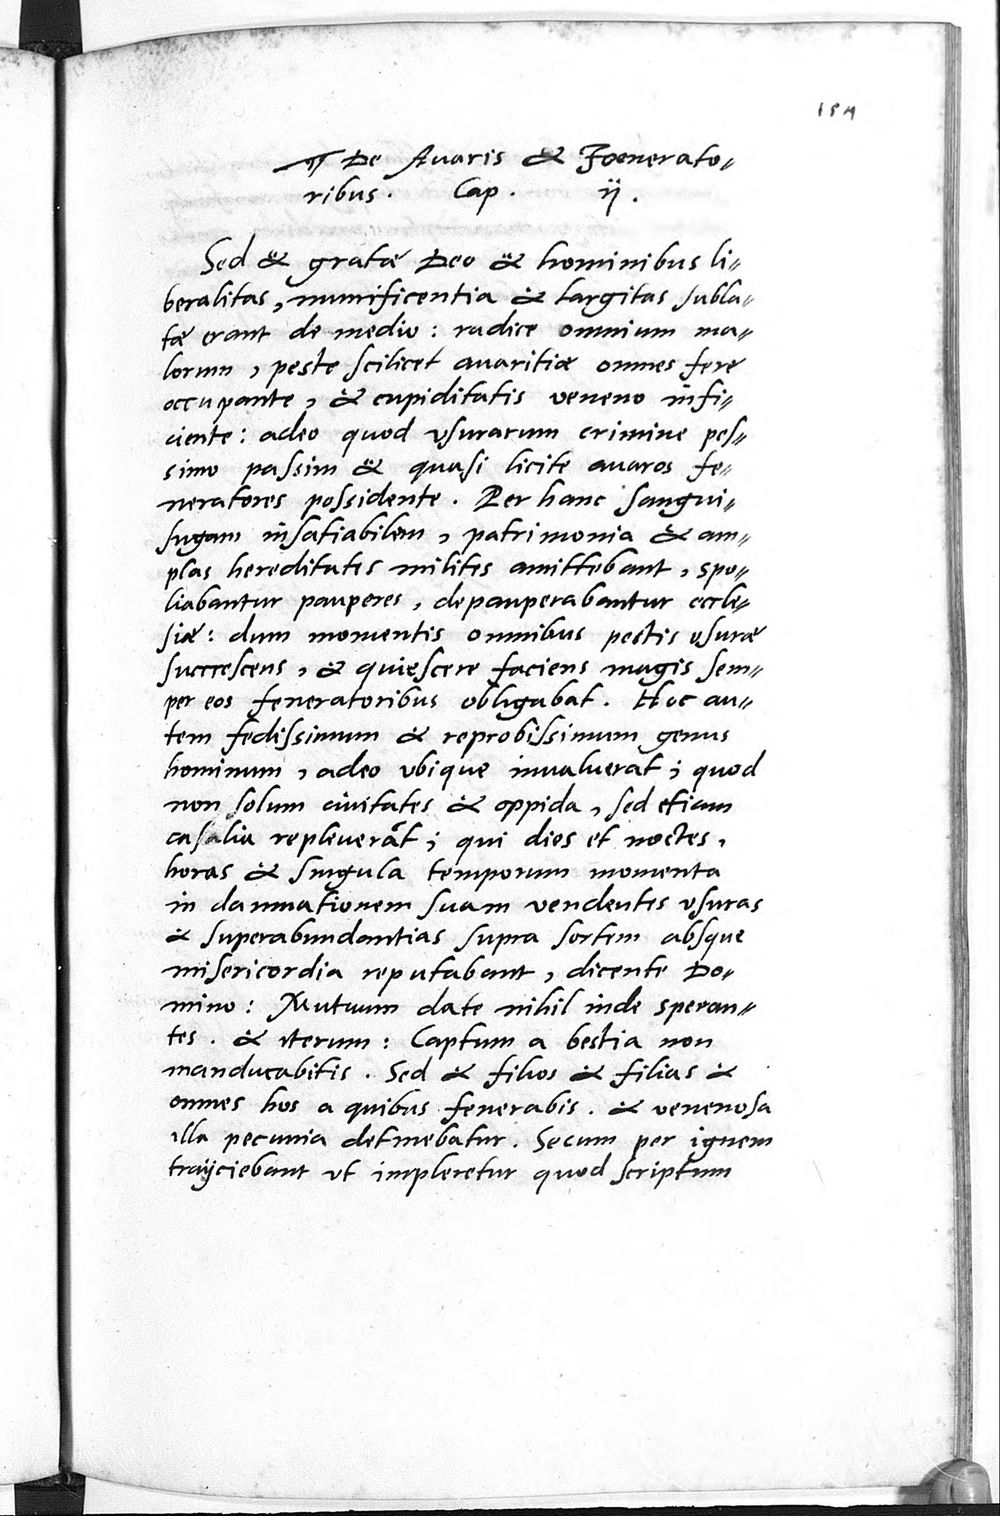 154
¶ De Auaris & Foenerato-
ribus. Cap. ij.
Sed & gratæ Deo & hominibus li-
beralitas, munificentia & largitas subla-
tæ erant de medio: radice omnium ma-
lorum, peste scilicet auaritiæ omnes fere
occupante, & cupiditatis veneno infi-
ciente: adeo quod vsurarum crimine pes-
simo passim & quasi licite auaros fe-
neratores possidente. Per hanc sangui-
sugam insatiabilem, patrimonia & am-
plas hereditates milites amittebant, spo-
liabantur pauperes, depauperabantur eccle-
siæ: dum momentis omnibus pestis vsuræ
succrescens, & quiescere faciens magis sem-
per eos feneratoribus obligabat. Hoc au-
tem fedissimum & reprobissimum genus
hominum, adeo vbique inualuerat; quod
non solum ciuitates & oppida, sed etiam
casalia repleuerāt; qui dies et noctes,
horas & singula temporum momenta
in damnationem suam vendentes vsuras
& superabundantias supra sortem absque
misericordia reputabant, dicente Do-
mino: Mutuum date nihil inde speran-
tes. & iterum: Captum a bestia non
manducabitis. Sed & filios & filias &
omnes hos a quibus fenerabis. & venenosa
illa pecunia detinebatur. Secum per ignem
traijciebant vt impleretur quod scriptum